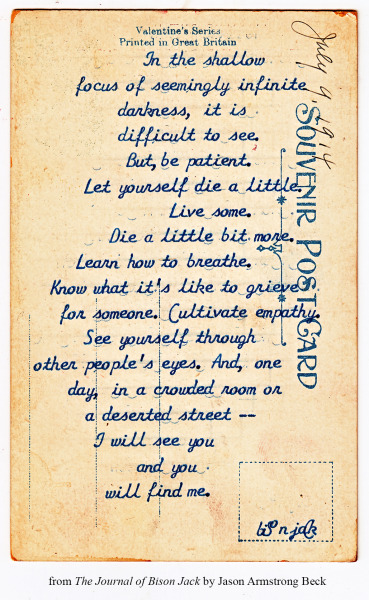 Valentine's Series
Printed in Great Britain
July 9, 1914
SOUVENIR POST CARD
In the shallow
focus of seemingly infinite
darkness, it is
difficult to see.
But, be patient.
Let yourself die a little.
Live some.
Die a little bit more.
Learn how to breathe.
Know what it's like to grieve
for someone. Cultivate empathy.
See yourself through
other people's eyes. And, one
day, in a crowded room or
a deserted street --
I will see you
and you
will find me.
from The Journal of Bison Jack by Jason Armstrong Beck